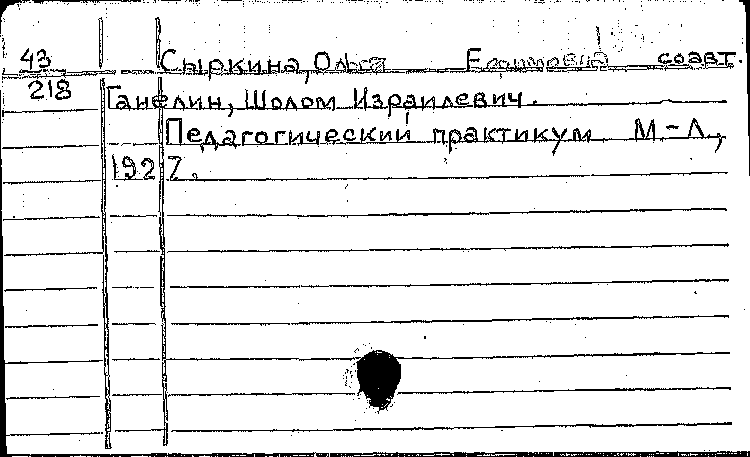 43 Сыркина, Ольга Ефимовна соавт.
218 Ганелин, Шолом Израилевич.
Педагогический практикум М.-Л.,
1927.